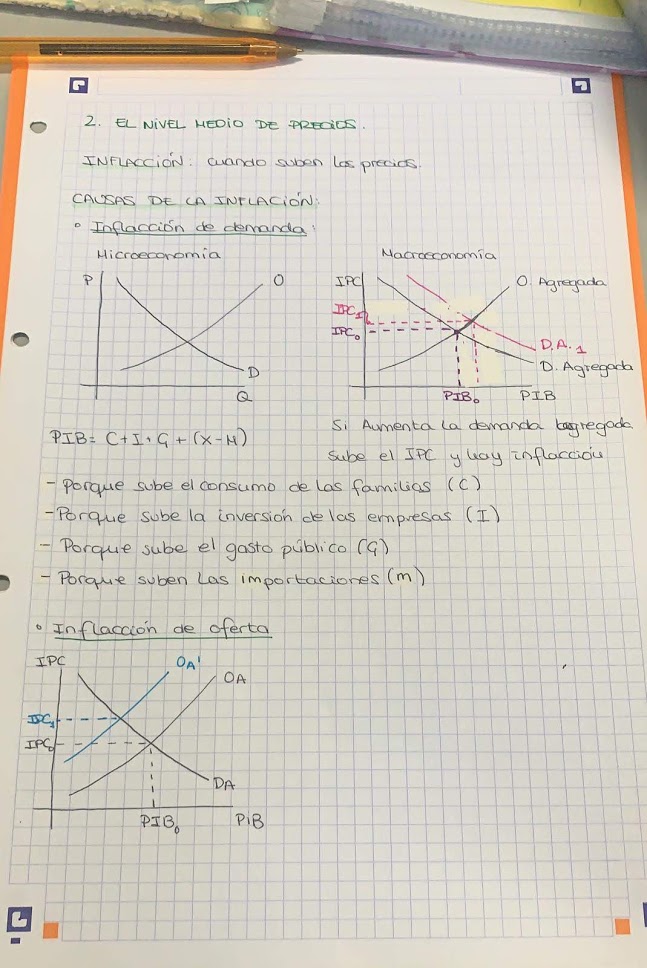 2. EL NIVEL MEDIO DE PRECIOS.
INFLACCIÓN: cuando suben los precios.
CAUSAS DE LA INFLACIÓN:
Inflacción de demanda:
Microeconomía
P
O
D
Q
Macroeconomía
IPC
O. Agregada
IPC1
IPC0
D.A.1
D. Agregada
PIB0
PIB
PIB = C+I+G+(X-M)
Si Aumenta la demanda agregada
Sube el IPC y hay inflacción
- Porque sube el consumo de las familias (C)
- Porque sube la inversión de las empresas (I)
- Porque sube el gasto público (G)
- Porque suben las importaciones (m)
Inflacción de oferta
IPC
OA'
OA
IPC1
IPC0
DA
PIB0
PiB